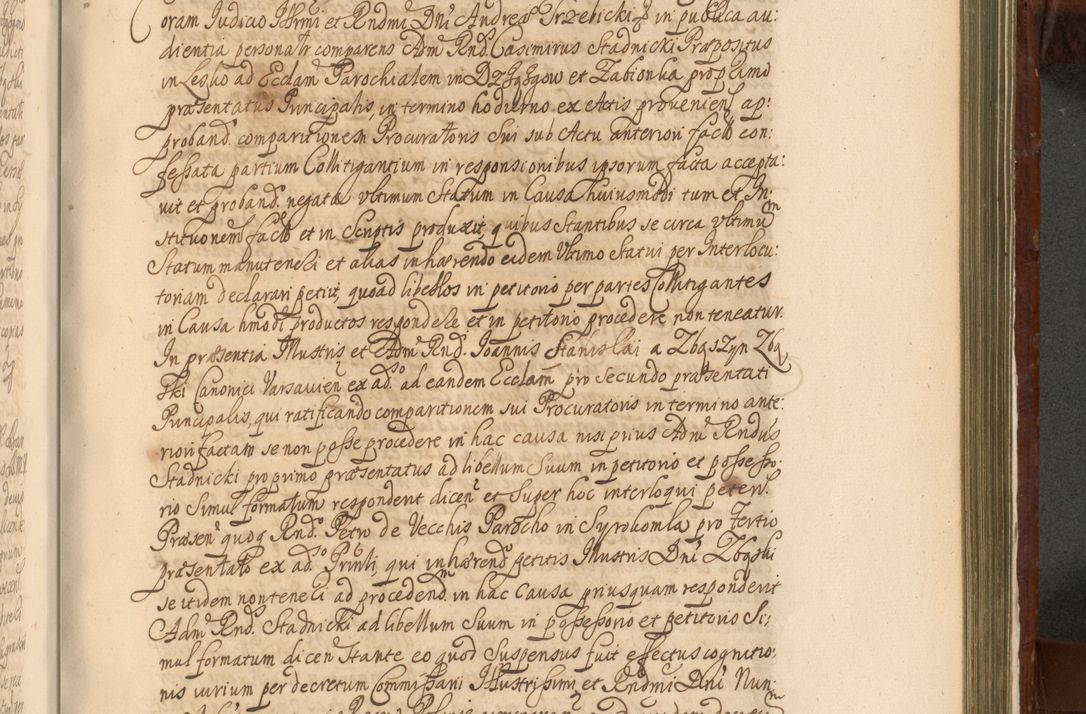 oram Judicio Illrmi et Rndmi Dni Andreæ Trzebicki in publica au:
dientia personalr comparens Adm Rnd. Casimirus Stadnicki Præpositus
in Lesko ad Ecclam Parochialem in et Zabionka pro primo
præsentatus Principalis, in termino hodierno ex Actis provenien ap:
proband comparitionem Procuratoris Sui sub Actu anteriori facto con:
fessata partium Collitigantium in responsionibus ipsorum facta accepta:
vit et proband. negata Vltimum Statum in Causa huiusmodi tum et In:
stitutionem facto et in Scriptis produxit, quibus stantibus se circa vltimum
Statum manuteneri et alias inhærendo eidem Vltimo Statui per Interlocu:
toriam declarari petiit, quoad libellos in petitorio per partes Collitigantes
in Causa hmodi productos respondere et in petitorio procedere non teneatur.
In præsentia Illustris et Adm Rnd. Joannis Stanislai a Zbąszyn Zbą
ski Canonici Varsavien ex ad.o ad eandem Ecclam pro secundo præsentati
Principalis, qui ratificando comparitionem sui Procuratoris in termino ante:
riori factam se non posse procedere in hac causa nisi prius Adm Rndus
Stadnicki pro primo præsentatus ad libellum Suum in petitorio et possesso:
rio Simul formatum respondent dicen et Super hoc interloqui peten.
Præsen quoq Rnd. Petro de Vecchis Parocho in Syrokomla pro Tertio
præsentato ex ad.o Prinli, qui inhærend petitis Illustris Dni Zbąski
se itidem non teneri ad procedend. in hac Causa priusquam responderit
Adm Rnd. Stadnicki ad libellum Suum in possessorio et petitorio Si:
mul formatum dicen Stante eo quod Suspensus fuit effectus cognitio:
nis iurium per decretum Commissarii Illustrissimi et Rndmi Dni Nun: